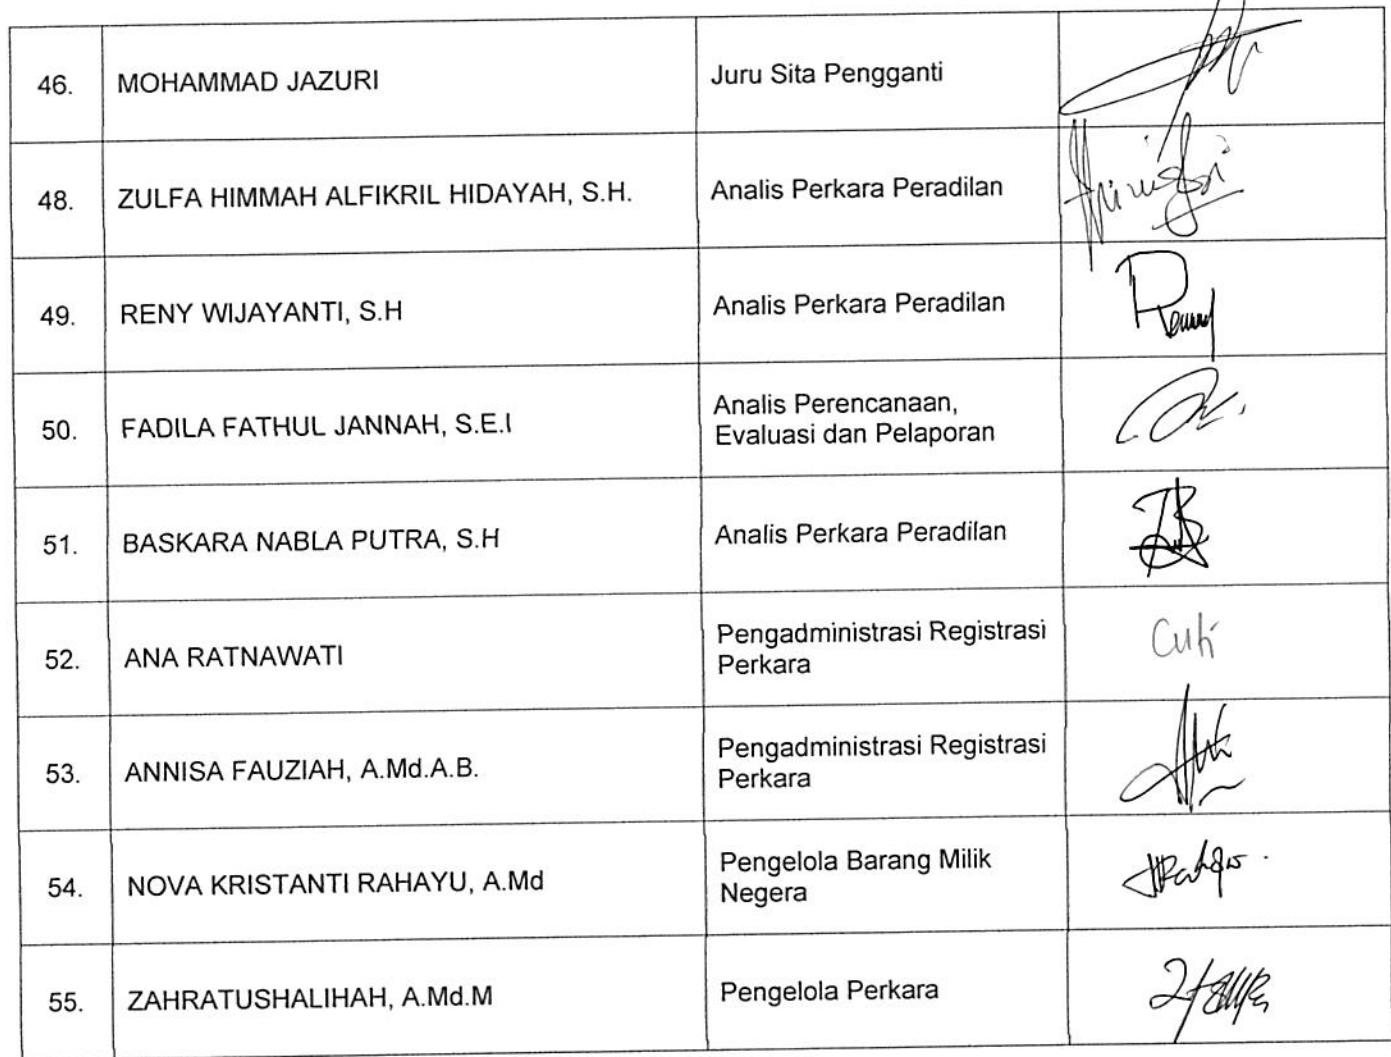 46. MOHAMMAD JAZURI Juru Sita Pengganti
48. ZULFA HIMMAH ALFIKRIL HIDAYAH, S.H. Analis Perkara Peradilan
49. RENY WIJAYANTI, S.H Analis Perkara Peradilan
50. FADILA FATHUL JANNAH, S.E.I Analis Perencanaan,
Evaluasi dan Pelaporan
51. BASKARA NABLA PUTRA, S.H Analis Perkara Peradilan
52. ANA RATNAWATI Pengadministrasi Registrasi
Perkara
Cuti
53. ANNISA FAUZIAH, A.Md.A.B. Pengadministrasi Registrasi
Perkara
54. NOVA KRISTANTI RAHAYU, A.Md Pengelola Barang Milik
Negera
55. ZAHRATUSHALIHAH, A.Md.M Pengelola Perkara